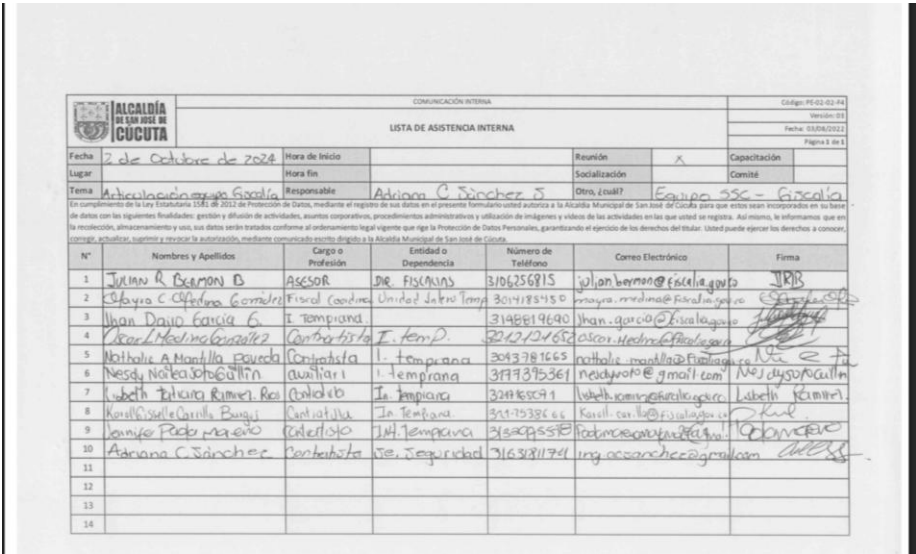 ALCALDÍA DE SAN JOSÉ DE CÚCUTA
COMUNICACIÓN INTERNA
LISTA DE ASISTENCIA INTERNA
Código: PE-02-02-F4
Versión: 03
Fecha: 03/08/2022
Página 1 de 1
Fecha 2 de Octubre de 2024 Hora de Inicio Reunión X Capacitación
Lugar Hora fin Socialización Comité
Tema Articulación equipo Fiscalía Responsable Adriana C Sánchez S Otro, ¿cuál? Equipo SSC - Fiscalía
En cumplimiento de la Ley Estatutaria 1581 de 2012 de Protección de Datos, mediante el registro de sus datos en el presente formulario usted autoriza a la Alcaldía Municipal de San José de Cúcuta para que estos sean incorporados en su base
de datos con las siguientes finalidades: gestión y difusión de actividades, asuntos corporativos, procedimientos administrativos y utilización de imágenes y videos de las actividades en las que usted se registra. Así mismo, le informamos que en
la recolección, almacenamiento y uso, sus datos serán tratados conforme al ordenamiento legal vigente que rige la Protección de Datos Personales, garantizando el ejercicio de los derechos del titular. Usted puede ejercer los derechos a conocer,
corregir, actualizar, suprimir y revocar la autorización, mediante comunicado escrito dirigido a la Alcaldía Municipal de San José de Cúcuta.
N° Nombres y Apellidos Cargo o Profesión Entidad o Dependencia Número de Teléfono Correo Electrónico Firma
1 JULIAN R BERMON B ASESOR DIR. FISCALIAS 3106256815 julian.bermon@fiscalia.gov.co JRB
2 Mayra C Medina Fiscal Unidad Temp 3014185450
3 Jhan García G. I. Temprana. 3148819690
4 Oscar L Medina González Contratista I. temp.
5 Nathalie A Mantilla Poveda Contratista I. temprana 3043781665
6 Nesdy Soto auxiliar I temprana 3177395361
7 Lisbeth Tatiana Ramirez Contratista In. Temprana Lisbeth Ramirez.
8 Karoll Giselle Carrillo In. Temprana.
9 Jennifer Paola Moreno Contratista Int. Temprana
10 Adriana C. Sánchez Contratista Se. Seguridad ing.acsanchez@gmail.com
11
12
13
14